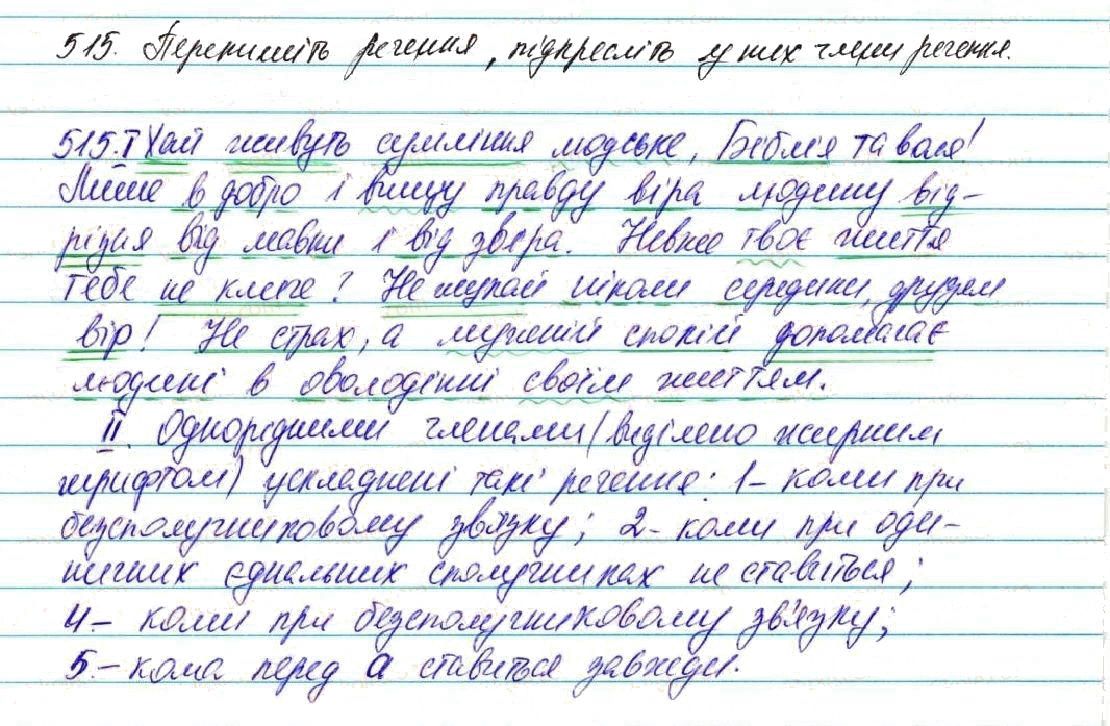 515. Перепишіть речення, підкресліть у них члени речення.
515. I Хай живуть сумління людське, Біблія та воля!
Лише в добро і вищу правду віра людину від-
різня від мавпи і від звіра. Невже твоє життя
тебе не клене? Не шукай ніколи середини, друзям
вір! Не страх, а мужній спокій допомагає
людині в оволодінні своїм життям.
II. Однорідними членами (виділено жирним
шрифтом) ускладнені такі речення: 1 - коми при
безсполучниковому зв'язку; 2 - коми при оди-
ничних єднальних сполучниках не ставиться;
4 - коми при безсполучниковому зв'язку;
5 - кома перед а ставиться завжди.